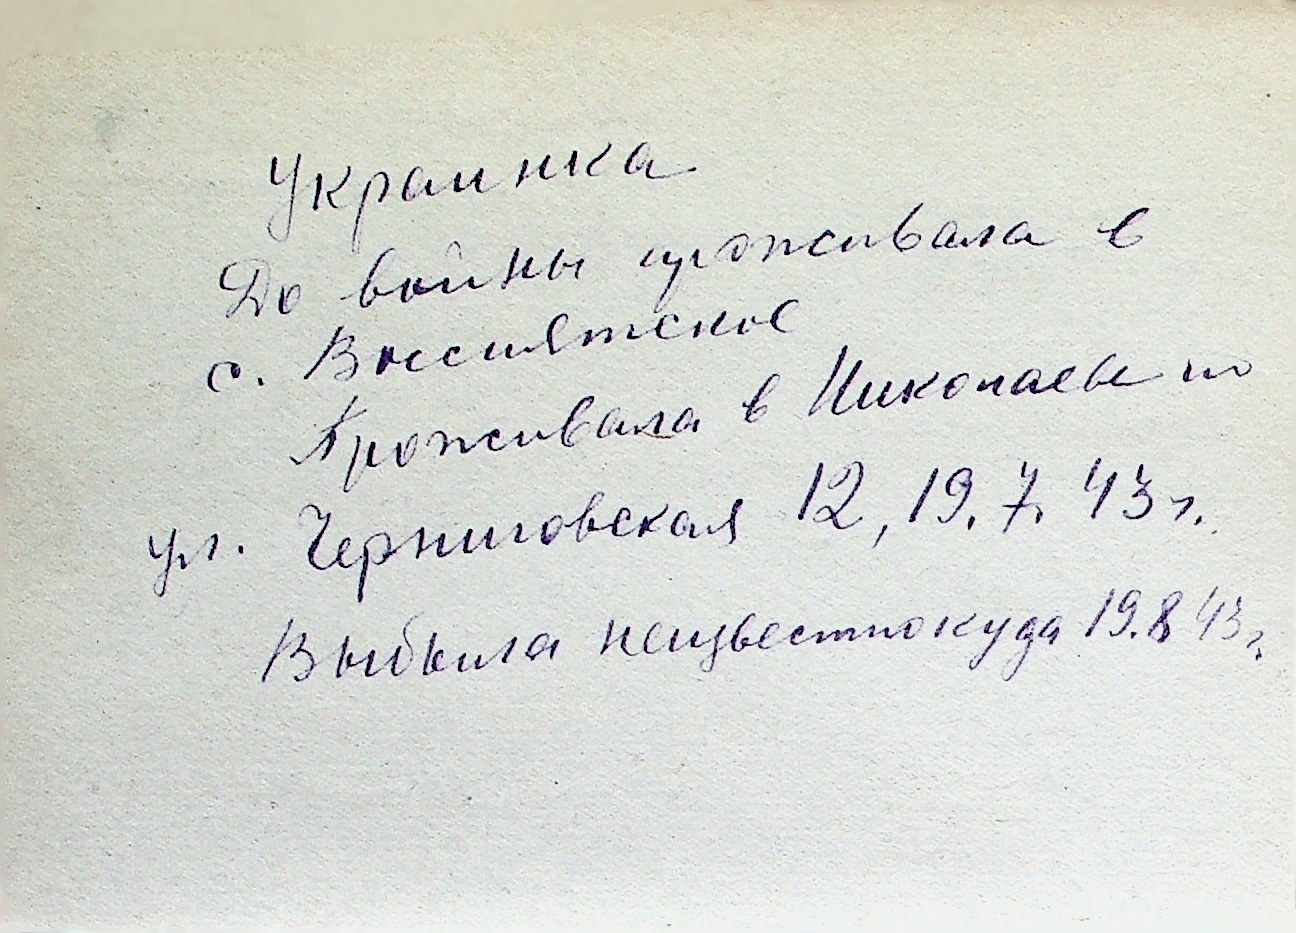 Украинка
До войны проживала в
с. Вссиятское
Проживала в Николаеве по
ул. Черниговская 12, 19.7.43 г.
Выбыла неизвестно куда 19.8 43 г.